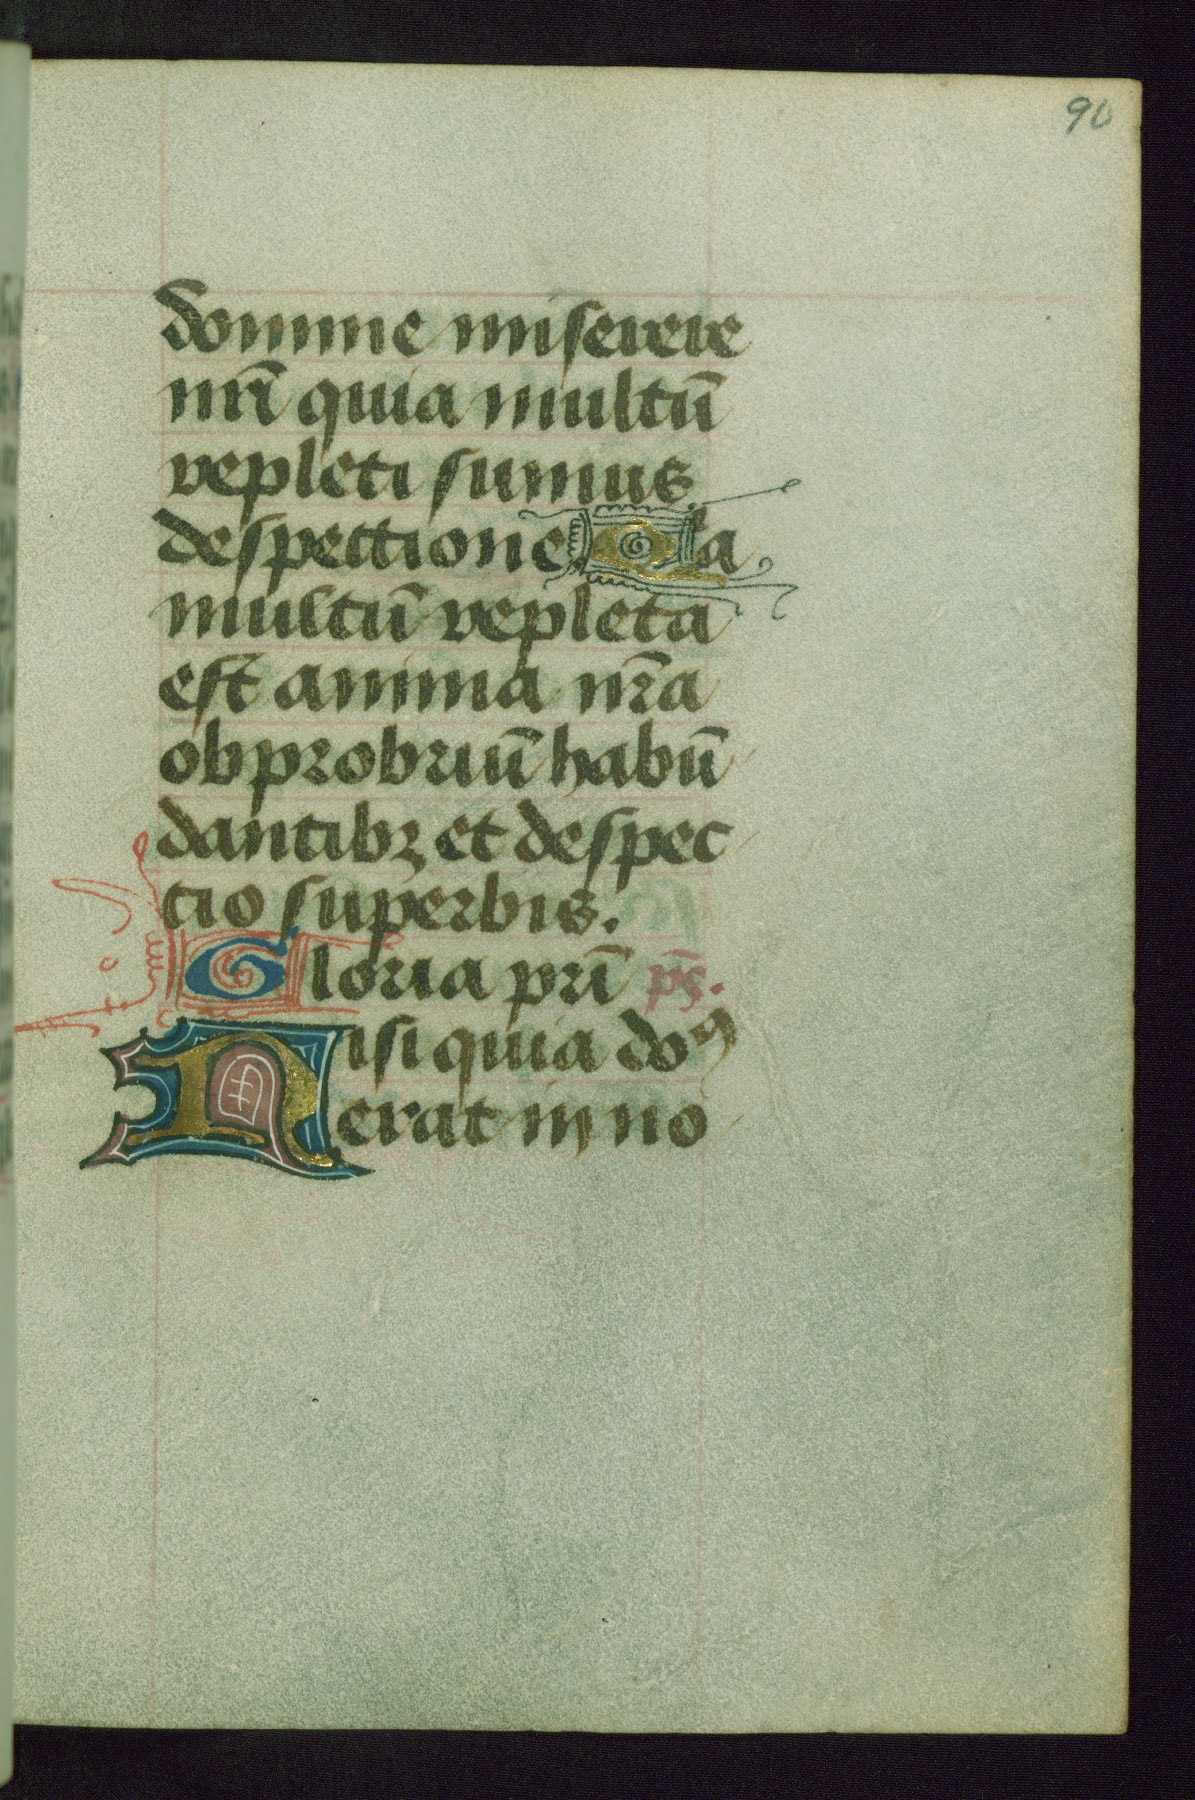 90
domine miserere
nr̄i quia multū
repleti sumus
despectione Qīa
multū repleta
est anima nr̄a
obprobriū habū
dantibꝫ et despec
tio superbis.
Gloria pr̄i p̄s.
Nisi quia doꝰ
erat in no